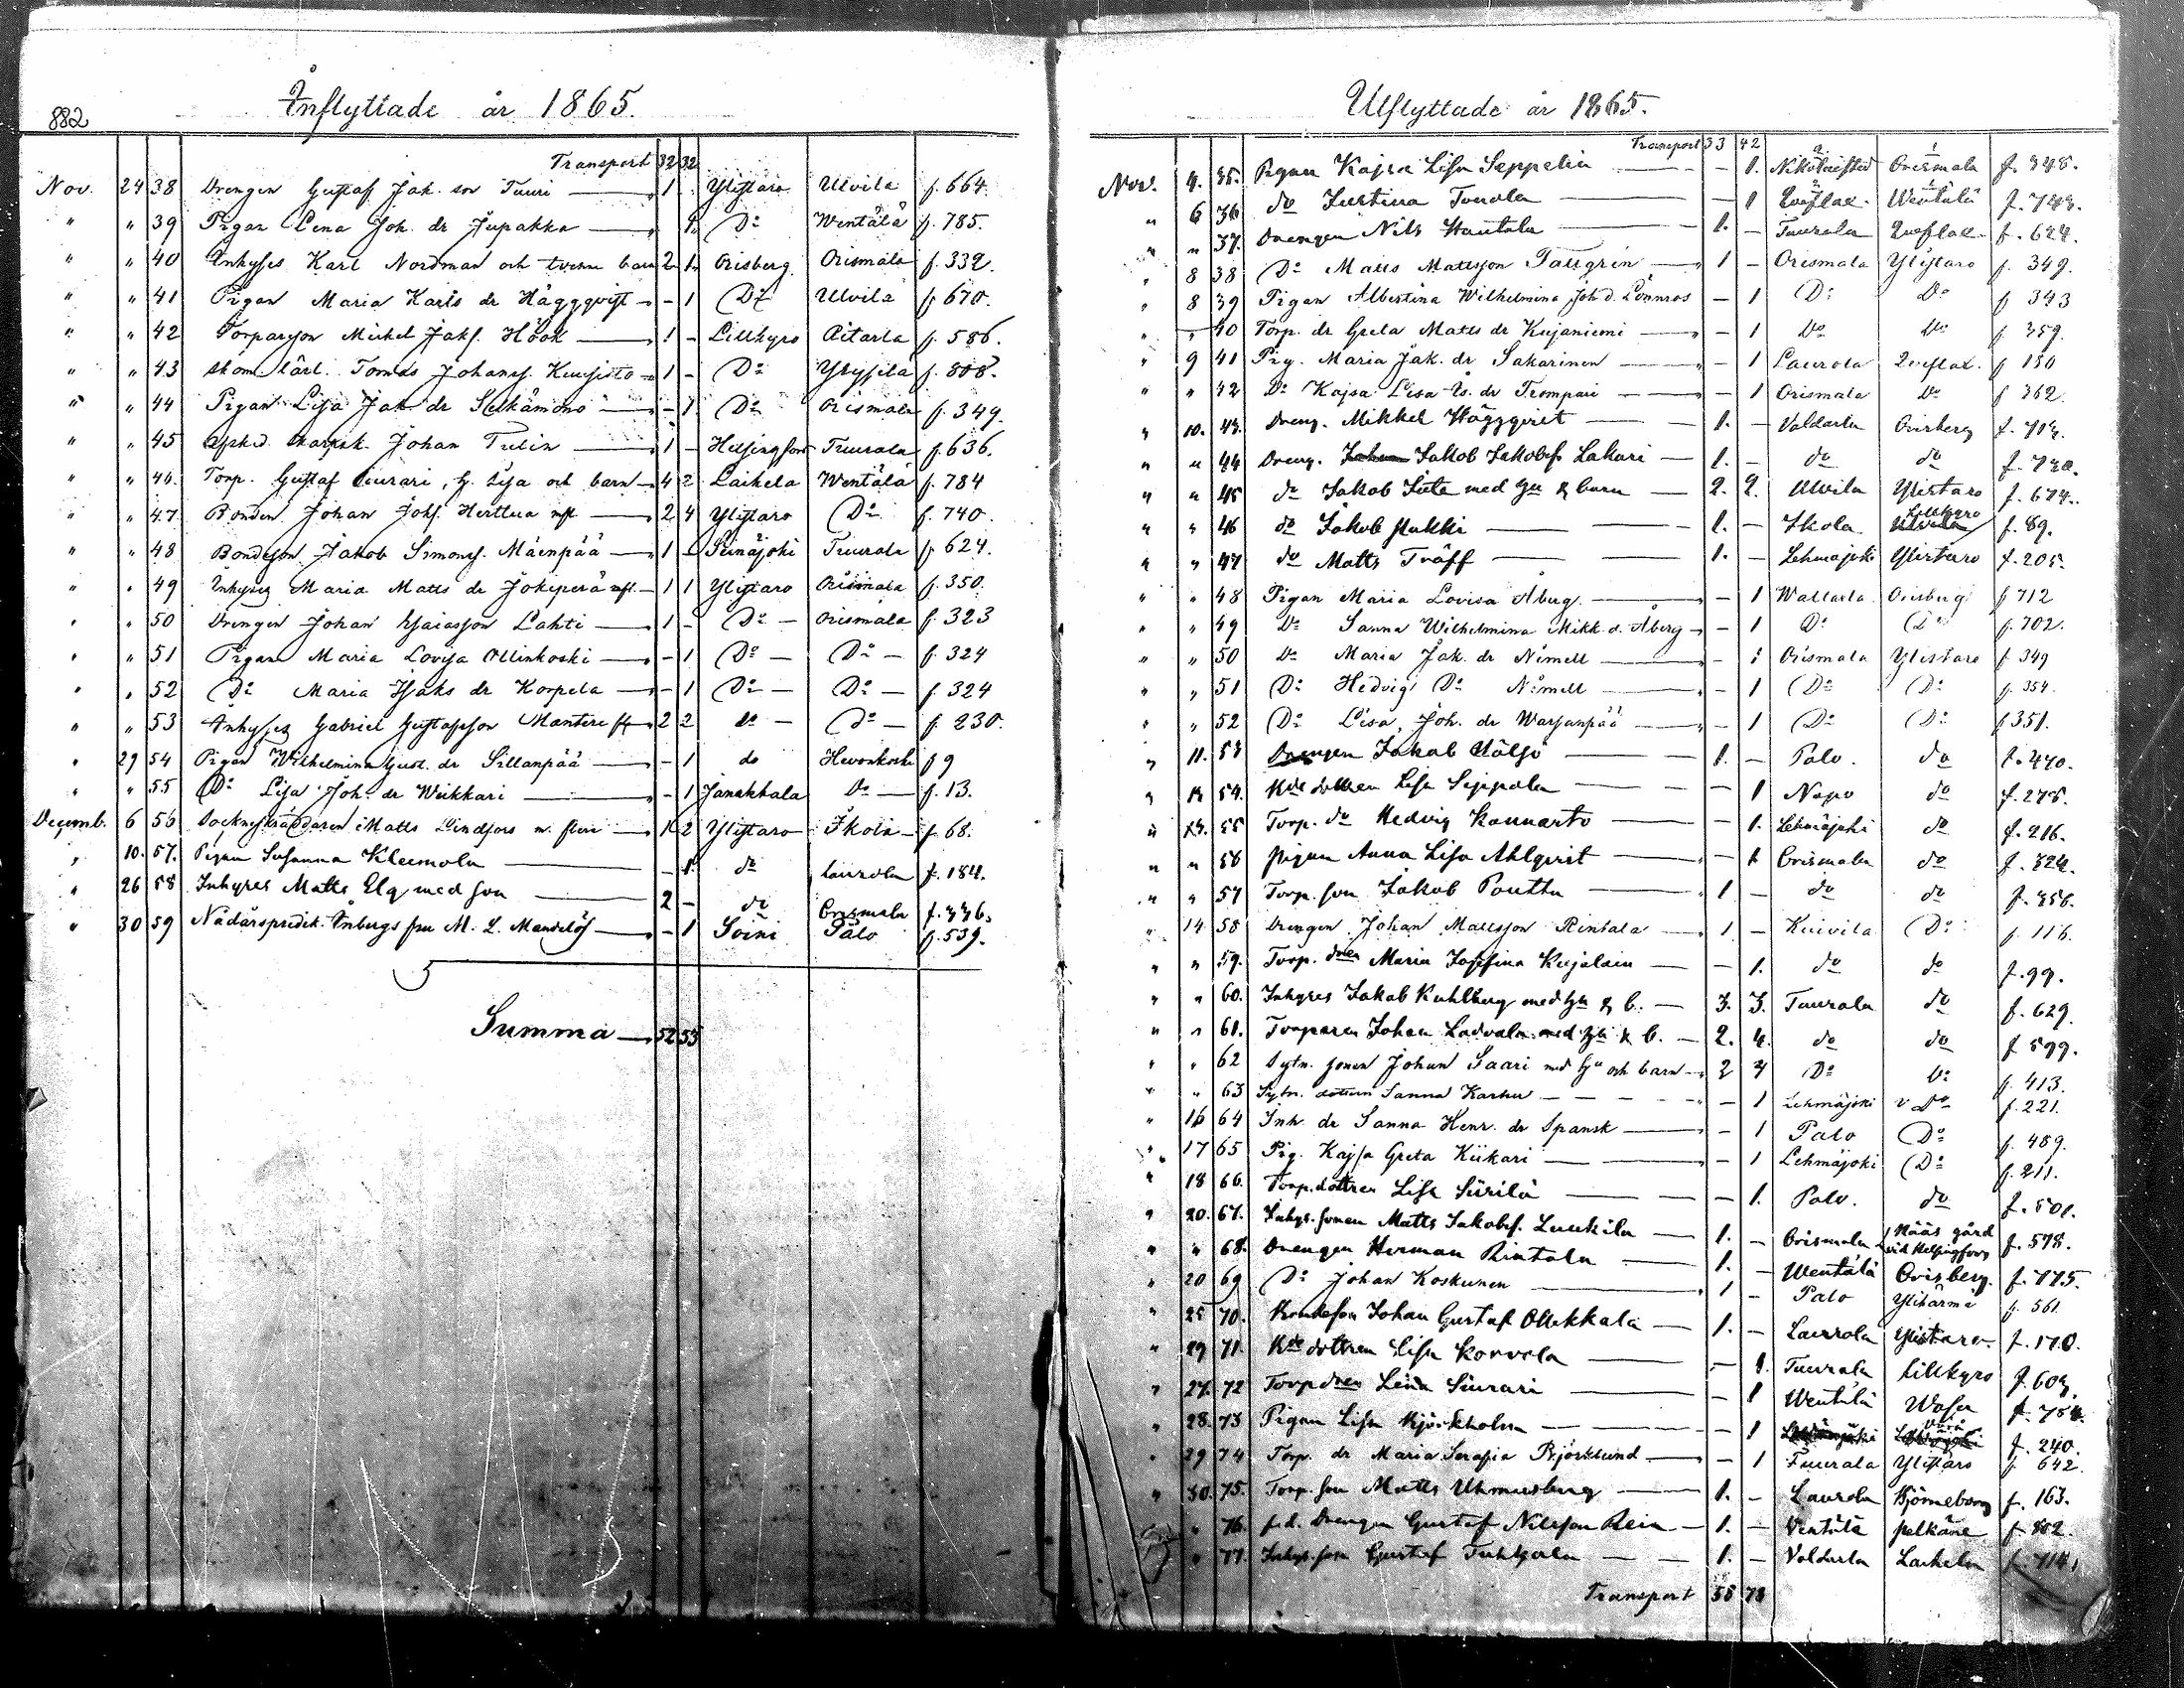 882
Inflyttade år 1865.
Transport 32 32
Nov. 24 38 Drengen Gustaf Jak. son Tuuri 1 Ylistaro Ulvila f. 664.
" " 39 Pigan Lena Joh. dr 1 Do Wentälä f. 785.
" " 40 Inhyses Karl Nordman och tvenne barn 2 1 Orisberg Orismala f. 332.
" " 41 Pigan Maria Karls dr Häggqvist - 1 Do Ulvila f. 670.
" " 42 Torparson Mickel Jakf. Höök 1 - Lillkyro Aitarla f. 586.
" " 43 skom. lärl. Tomas Johansf. Kuusisto 1 - Do f. 808.
" " 44 Pigan Lisa Jak dr - 1 Do Orismala f. 349.
" " 45 Johan Tulin 1 - Helsingfors Tuurala f. 636.
" " 46. Torp. Gustaf Siurari, h. Lisa och barn 4 2 Laihela Wentälä f. 784
" " 47 Bonden Johan Johf. Herttua mfl 2 4 Ylistaro Do f. 740.
" " 48 Bondeson Jakob Simonsf. Mäenpää 1 - Seinäjoki Tuurala f. 624.
" " 49 Inhyses Maria Matts dr Jokiperä mfl. 1 1 Ylistaro Orismala f. 350.
" " 50 Drengen Johan Isaiasson Lahti 1 - Do - Orismala f. 323
" " 51 Pigan Maria Lovisa Ollinkoski - 1 Do - Do - f. 324
" " 52 Do Maria Isaks dr Korpela - 1 Do - Do - f. 324
" " 53 Inhyses Gabriel Gustafsson Mantere 2 2 do - Do - f. 230.
" 29 54 Pigan Wilhelmina Gust. dr Sillanpää - 1 do Hevonkoski f 9
" " 55 Do Lisa Joh. dr Wiikkari - 1 Janakkala Do f. 13.
Decemb. 6 56 Sockneskräddaren Matts Lindfors m. flere 1 2 Ylistaro Ikola f. 68.
" 10. 57. Pigan Susanna Kleemola - 1 do Laurola f. 184.
" 26 58 Inhyses Matts Elg med son 2 - do Orismala f. 336.
" 30 59 Nådårspredik. Inbergs fru M. L. Mandelöf - 1 Soini Palo f. 539.
Summa 52 53
Utflyttade år 1865.
Transport 33 42
Nov. 4. 35. Pigan Kajsa Lisa Seppelin - 1. Nikolaistad Orismala f. 348.
" 6 36 do Justina Tuurala - 1 Qveflax. Wentälä f. 743.
" " 37. Drengen Nils Hautala 1. - Tuurala Qveflax f. 624.
" 8 38 Do Matts Mattsson Tallgrin 1 - Orismala Ylistaro f. 349.
" 8 39 Pigan Albertina Wilhelmina Joh. d. Lönnros - 1 Do Do f 343
" " 40 Torp. dr Greta Matts dr Kujaniemi - 1 Do Do f. 359.
" 9 41 Pig. Maria Jak. dr Sakarinen - 1 Laurola Qveflax. f 150
" " 42 Do Kajsa Lisa Is. dr Trompari - 1 Orismala Do f 362.
" 10. 43. Dreng. Mikkel Häggqvist 1. - Valdarla Orisberg f. 713.
" " 44 Dreng. Jakob Jakobsf. Lakari 1. - do do f. 720.
" " 45 do Jakob med hu & barn 2. 2. Ulvila Ylistaro f. 674.
" " 46 do Jakob Pukki 1. - Ikola Lillkyro f. 89.
" " 47 do Matts Träff 1. - Lehmäjoki Ylistaro f. 205.
" " 48 Pigan Maria Lovisa Åberg - 1 Waltarla Orisberg f 712
" " 49 Do Sanna Wilhelmina Mikk. d. Åberg - 1 Do Do f. 702.
" " 50 Do Maria Jak. dr Nimell - 1 Orismala Ylistaro f 349
" " 51 Do Hedvig Do Nimell - 1 Do Do f. 354.
" " 52 Do Lisa Joh. dr Warjanpää - 1 Do Do f 351.
" 11. 53 Drengen Jakob Hölsö 1. - Palo. do f. 470.
" 12 54. dottren Lisa Seppala - 1 Napo do f. 278.
" 13. 55 Torp. do Hedvig Kaunisto - 1. Lehmäjoki do f. 216.
" " 56 Pigan Anna Lisa Ahlqvist - 1 Orismala do f. 324.
" " 57 Torp. son Jakob Pouttu 1 - do do f. 356.
" 14. 58 Drengen Johan Mattsson Rintala 1 - Kuivila Do f. 116.
" " 59. Torp. dren Maria Josefina Kujalain - 1. do do f. 99.
" " 60. Inhyses Jakob Kuhlberg med hu & b. 3. 3. Tuurala do f. 629.
" " 61. Torparen Johan Ladvala med hu & b. 2. 4. do do f 599.
" " 62 Sytn. sonen Johan Saari med hu och barn 2 4 Do Do f. 413.
" " 63 Sytn. dottren Sanna Karhu - 1 Lehmäjoki Do f. 221.
" 16 64 Inh. dr Sanna Henr. dr Spansk - 1 Palo Do f. 489.
" 17 65 Pig. Kajsa Greta Kiikari - 1 Lehmäjoki Do f. 211.
" 18 66. Torp. dottren Lisa Siirilä - 1. Palo. do f. 501.
" 20. 67. Inhys. sonen Matts Jakobsf. Luukila 1. - Orismala Nääs gård vid Helsingfors f. 578.
" " 68. Drengen Herman Rintala 1. - Wentälä Orisberg. f. 775.
" 20 69 Do Johan Koskunen 1 - Palo Ylihärmä f. 561.
" 25 70. Bondeson Johan Gustaf Ollikkala 1. - Laurola Ylistaro f. 170.
" 29 71. dottren Lisa Korvola - 1. Tuurala Lillkyro f. 603.
" 27. 72 Torp dren Lena Siurari - 1 Wentälä Wasa f. 784.
" 28. 73 Pigan Lisa Björkholm - 1 f. 240.
" 29 74 Torp. dr Maria Serafia Björklund - 1 Tuurala Ylistaro f 642.
" 30. 75. Torp. son Matts 1. - Laurola Björneborg f. 163.
" " 76. Drengen Gustaf Nilsson Rein 1. - Ventälä Pelkäne f. 802.
" " 77. Inhys. son Gustaf 1. - Valdarla Laihela f. 714.
Transport 58 78